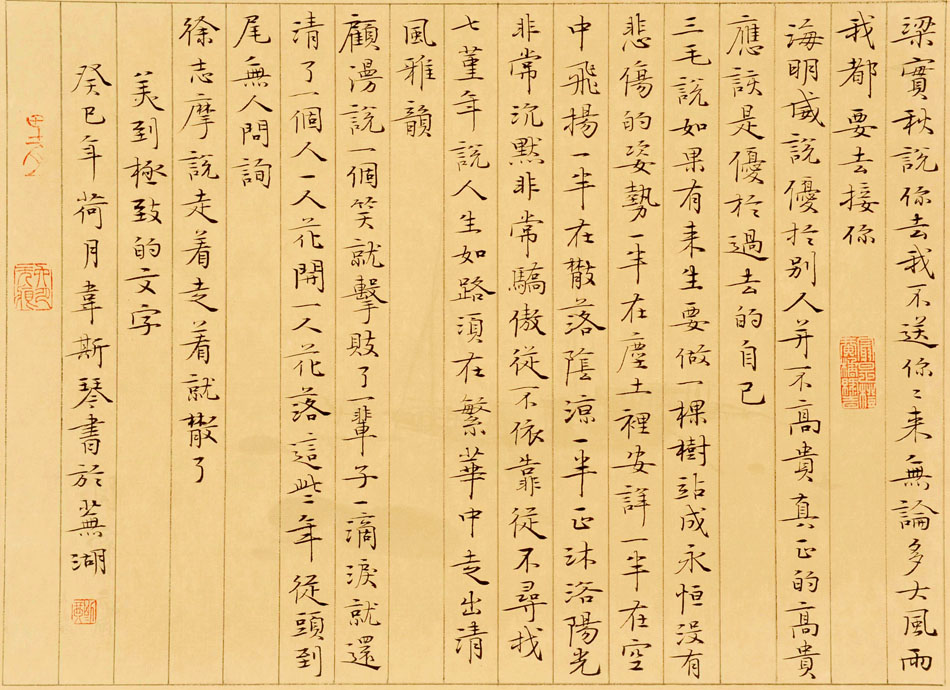 梁實秋說你去我不送你〻来無論多大風雨
我都要去接你
海明威說優扵别人并不高貴真正的高貴
應該是優扵過去的自己
三毛說如果有来生要做一棵樹站成永恒没有
悲傷的姿勢一半在塵土裡安詳一半在空
中飛揚一半在散落蔭凉一半正沐洛陽光
非常沉默非常驕傲從不依靠從不尋找
七堇年說人生如路須在繁華中走出清
風雅韻
顧漫說一個笑就擊敗了一輩子一滴淚就還
清了一個人一人花開一人花落這些年從頭到
尾無人問詢
徐志摩說走着走着就散了
美到極致的文字
癸巳年荷月韋斯琴書於蕪湖